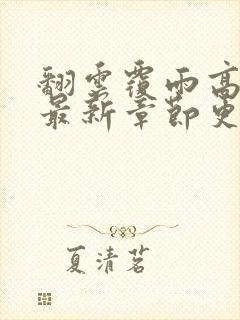 翻雲覆雨高
最新章節更
夏清茗